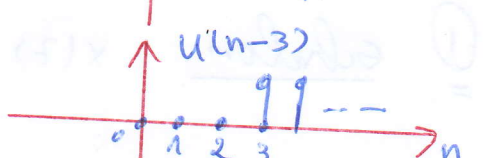 u(n-3)
0 1 2 3 n